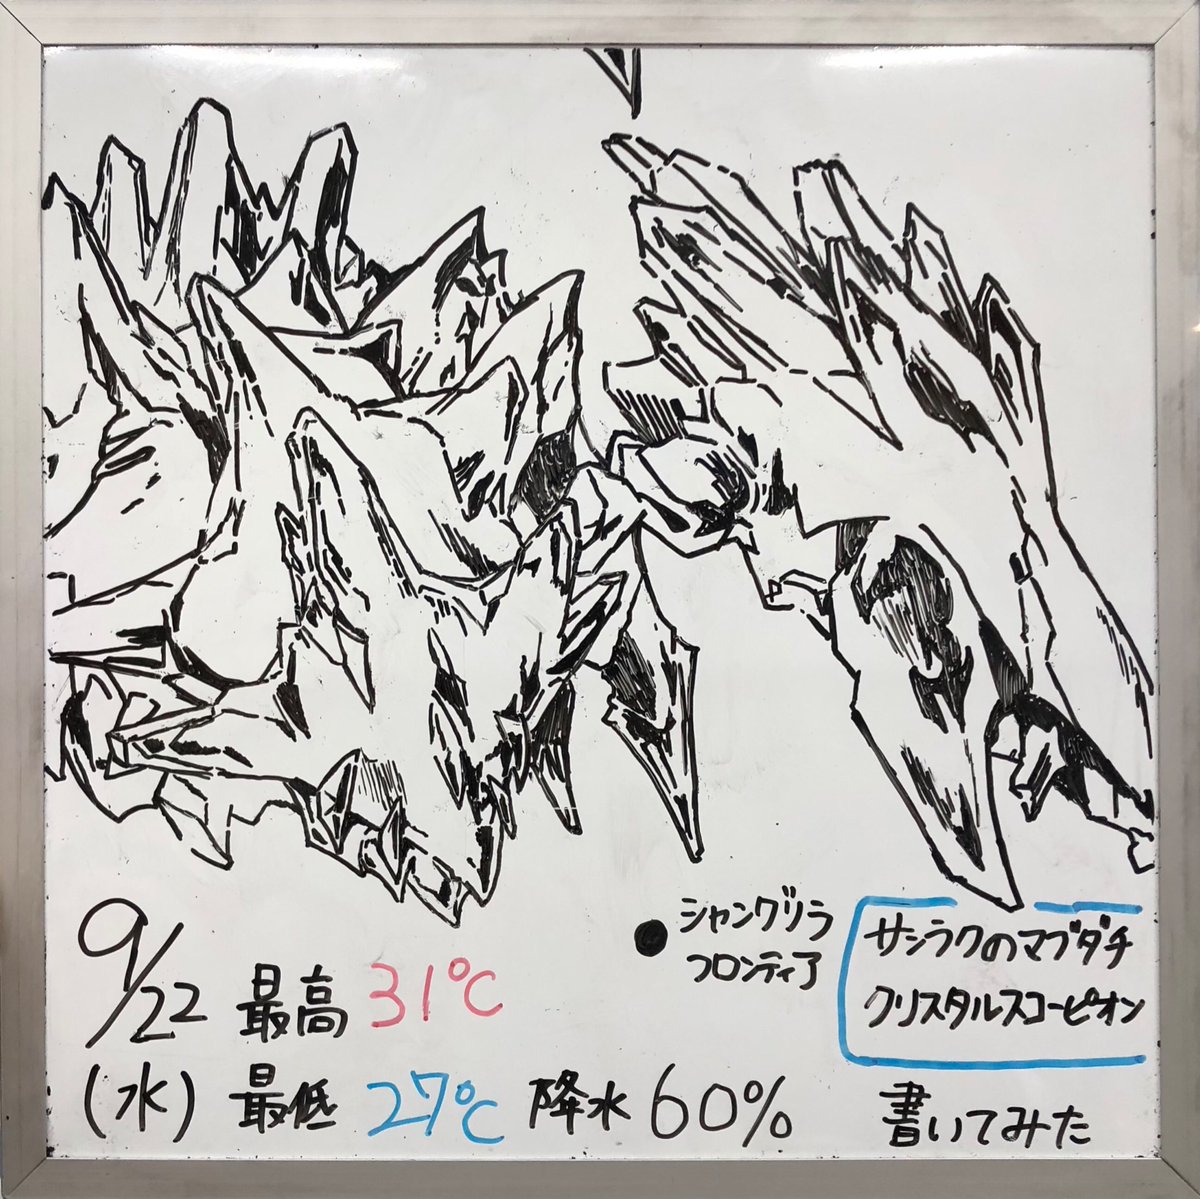 9/22
(水)
最高 31℃
最低 27℃ 降水 60%
●シャングリラ
フロンティア
サンラクのマブダチ
クリスタルスコーピオン
書いてみた